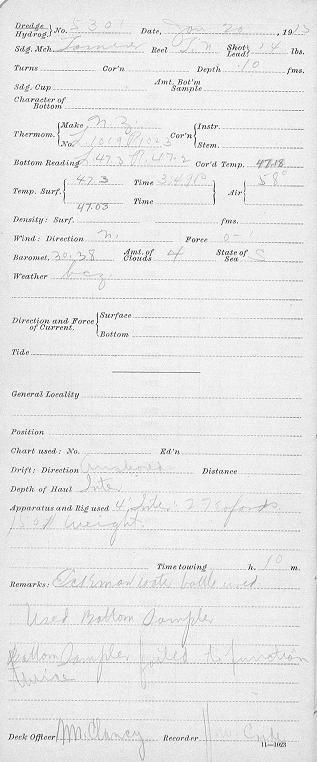 Dredge
Hydrog. No. 5301 Date, Jan 20, 1913
Sdg. Mch. Tanner Reel Shot Lead 14 lbs.
Turns Cor'n Depth 10 fms.
Sdg. Cup Amt. Bot'm Sample
Character of Bottom
Thermom. Make N.Z. Cor'n Instr.
No. Stem.
Bottom Reading L 47.3 R 47.2 Cor'd Temp. 47.18
Temp. Surf. 47.3 Time Air 58°
47.03 Time
Density: Surf. fms.
Wind: Direction N. Force 0-1
Baromet. 30.38 Amt. of Clouds 4 State of Sea S
Weather bcz.
Direction and Force of Current. Surface
Bottom
Tide
General Locality
Position
Chart used: No. Ed'n
Drift: Direction Anchored Distance
Depth of Haul Inter
Apparatus and Rig used 4' Inter: 27
150# weight
Time towing h. 10 m.
Remarks: Eckman water bottle used
Used Bottom Sampler
Bottom Sampler failed to function
twice
Deck Officer M. Clancy Recorder
11—1023